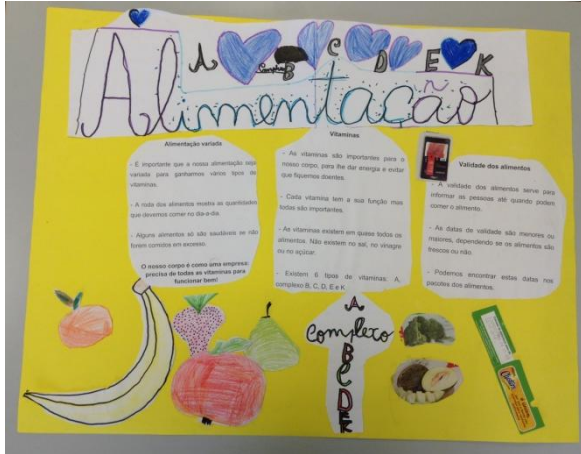 A B C D E K
Complexo
Alimentação
Alimentação variada
- É importante que a nossa alimentação seja
variada para ganharmos vários tipos de
vitaminas.
- A roda dos alimentos mostra as quantidades
que devemos comer no dia-a-dia.
- Alguns alimentos só são saudáveis se não
forem comidos em excesso.
O nosso corpo é como uma empresa:
precisa de todas as vitaminas para
funcionar bem!
Vitaminas
- As vitaminas são importantes para o
nosso corpo, para lhe dar energia e evitar
que fiquemos doentes.
- Cada vitamina tem a sua função mas
todas são importantes.
- As vitaminas existem em quase todos os
alimentos. Não existem no sal, no vinagre
ou no açúcar.
- Existem 6 tipos de vitaminas: A,
complexo B, C, D, E e K
Validade dos alimentos
- A validade dos alimentos serve para
informar as pessoas até quando podem
comer o alimento.
- As datas de validade são menores ou
maiores, dependendo se os alimentos são
frescos ou não.
- Podemos encontrar estas datas nos
pacotes dos alimentos.
A
Complexo
B
C
D
E
K